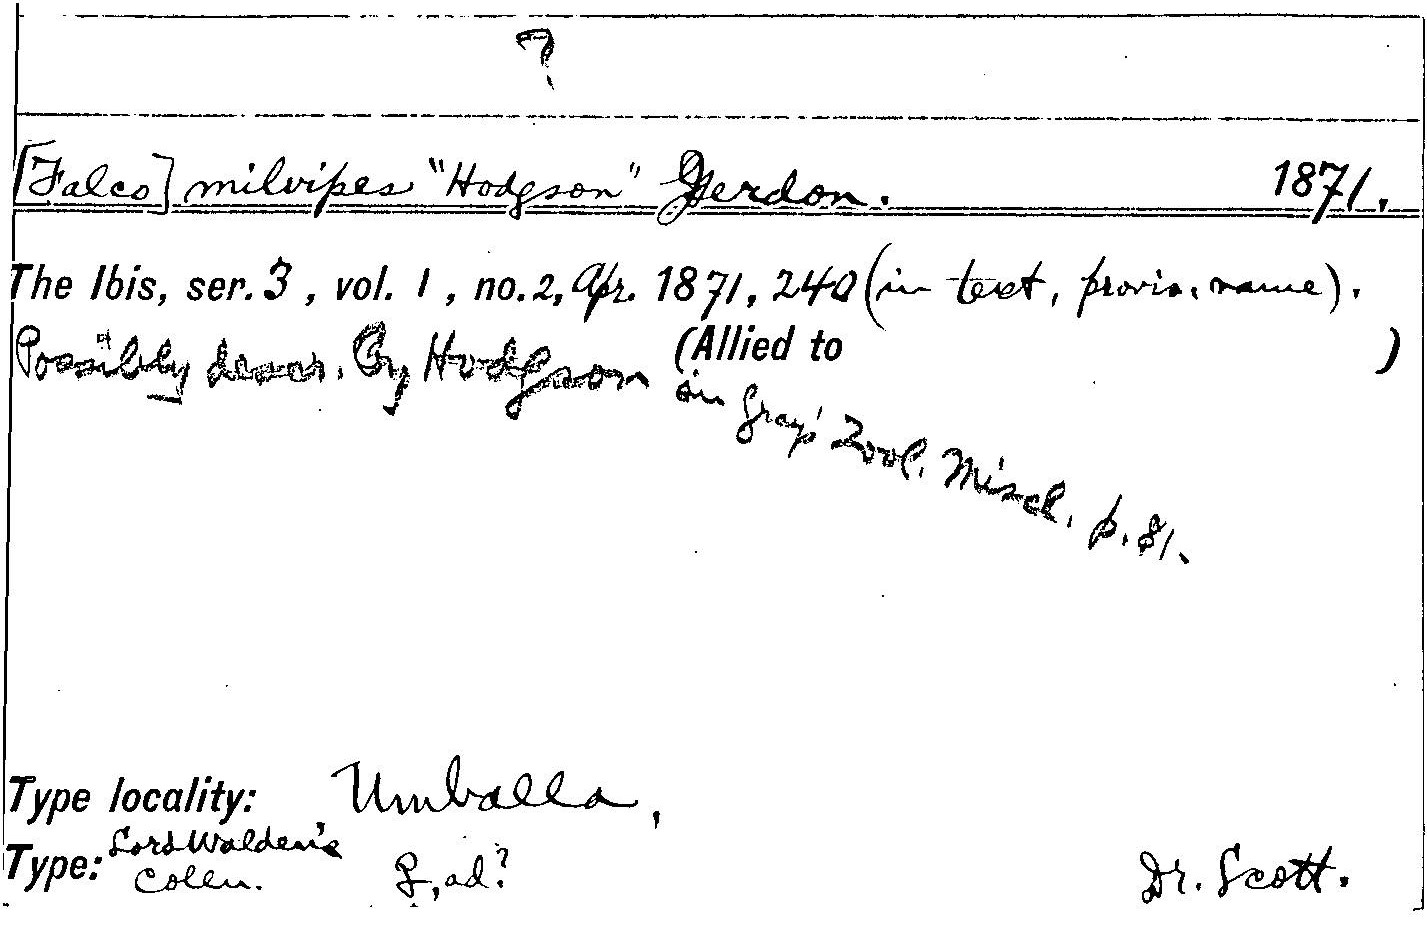 ?
[Falco] milvipes "Hodgson" Jerdon. 1871.
The Ibis, ser. 3, vol. 1, no. 2, Apr. 1871, 240 (in text, provis. name).
(Allied to )
Possibly descr. by Hodgson in Gray's Zool. Miscl. p. 81.
Type locality: Umballa,
Type: Lord Walden's Colln. ♀, ad? Dr. Scott.